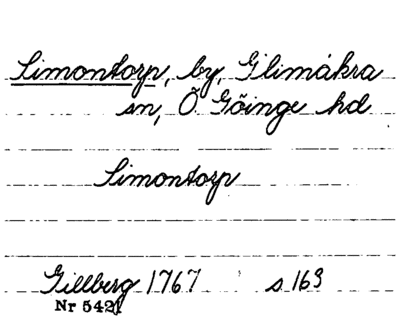 Simontorp, by, Glimåkra
sn, Ö. Göinge hd
Simontorp
Gillberg 1767 s 163
Nr 5421